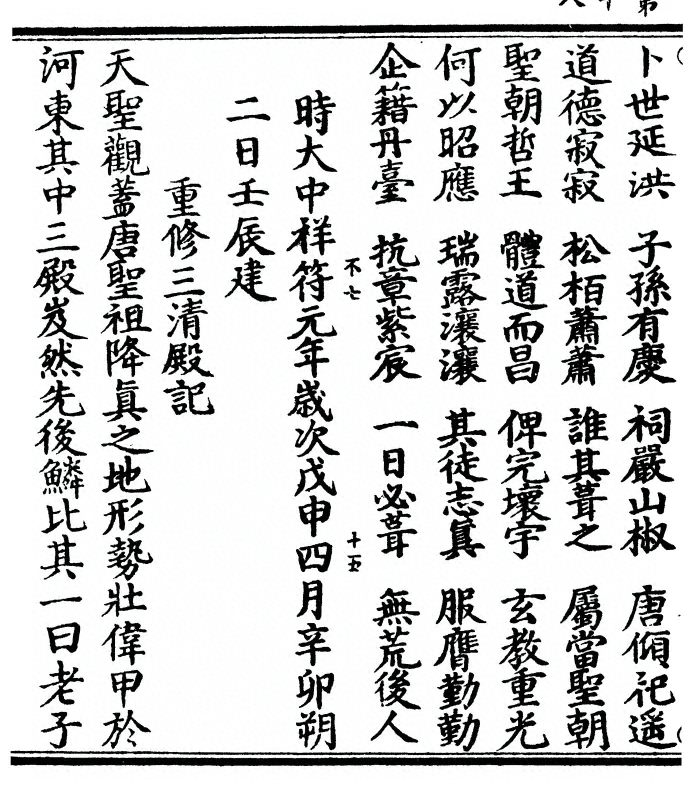 卜世延洪 子孫有慶 祠嚴山椒 唐傾祀遥
道德寂寂 松栢蕭蕭 誰其葺之 屬當聖朝
聖朝哲王 體道而昌 俾完壞宇 玄教重光
何以昭應 瑞露瀼瀼 其徒志真 服膺勤勤
企籍丹臺 抗章紫宸 一日必葺 無荒後人
時大中祥符元年歲次戊申四月辛卯朔
不七
十五
二日壬辰建
重修三清殿記
天聖觀蓋唐聖祖降眞之地形勢壯偉甲於
河東其中三殿岌然先後鱗比其一曰老子